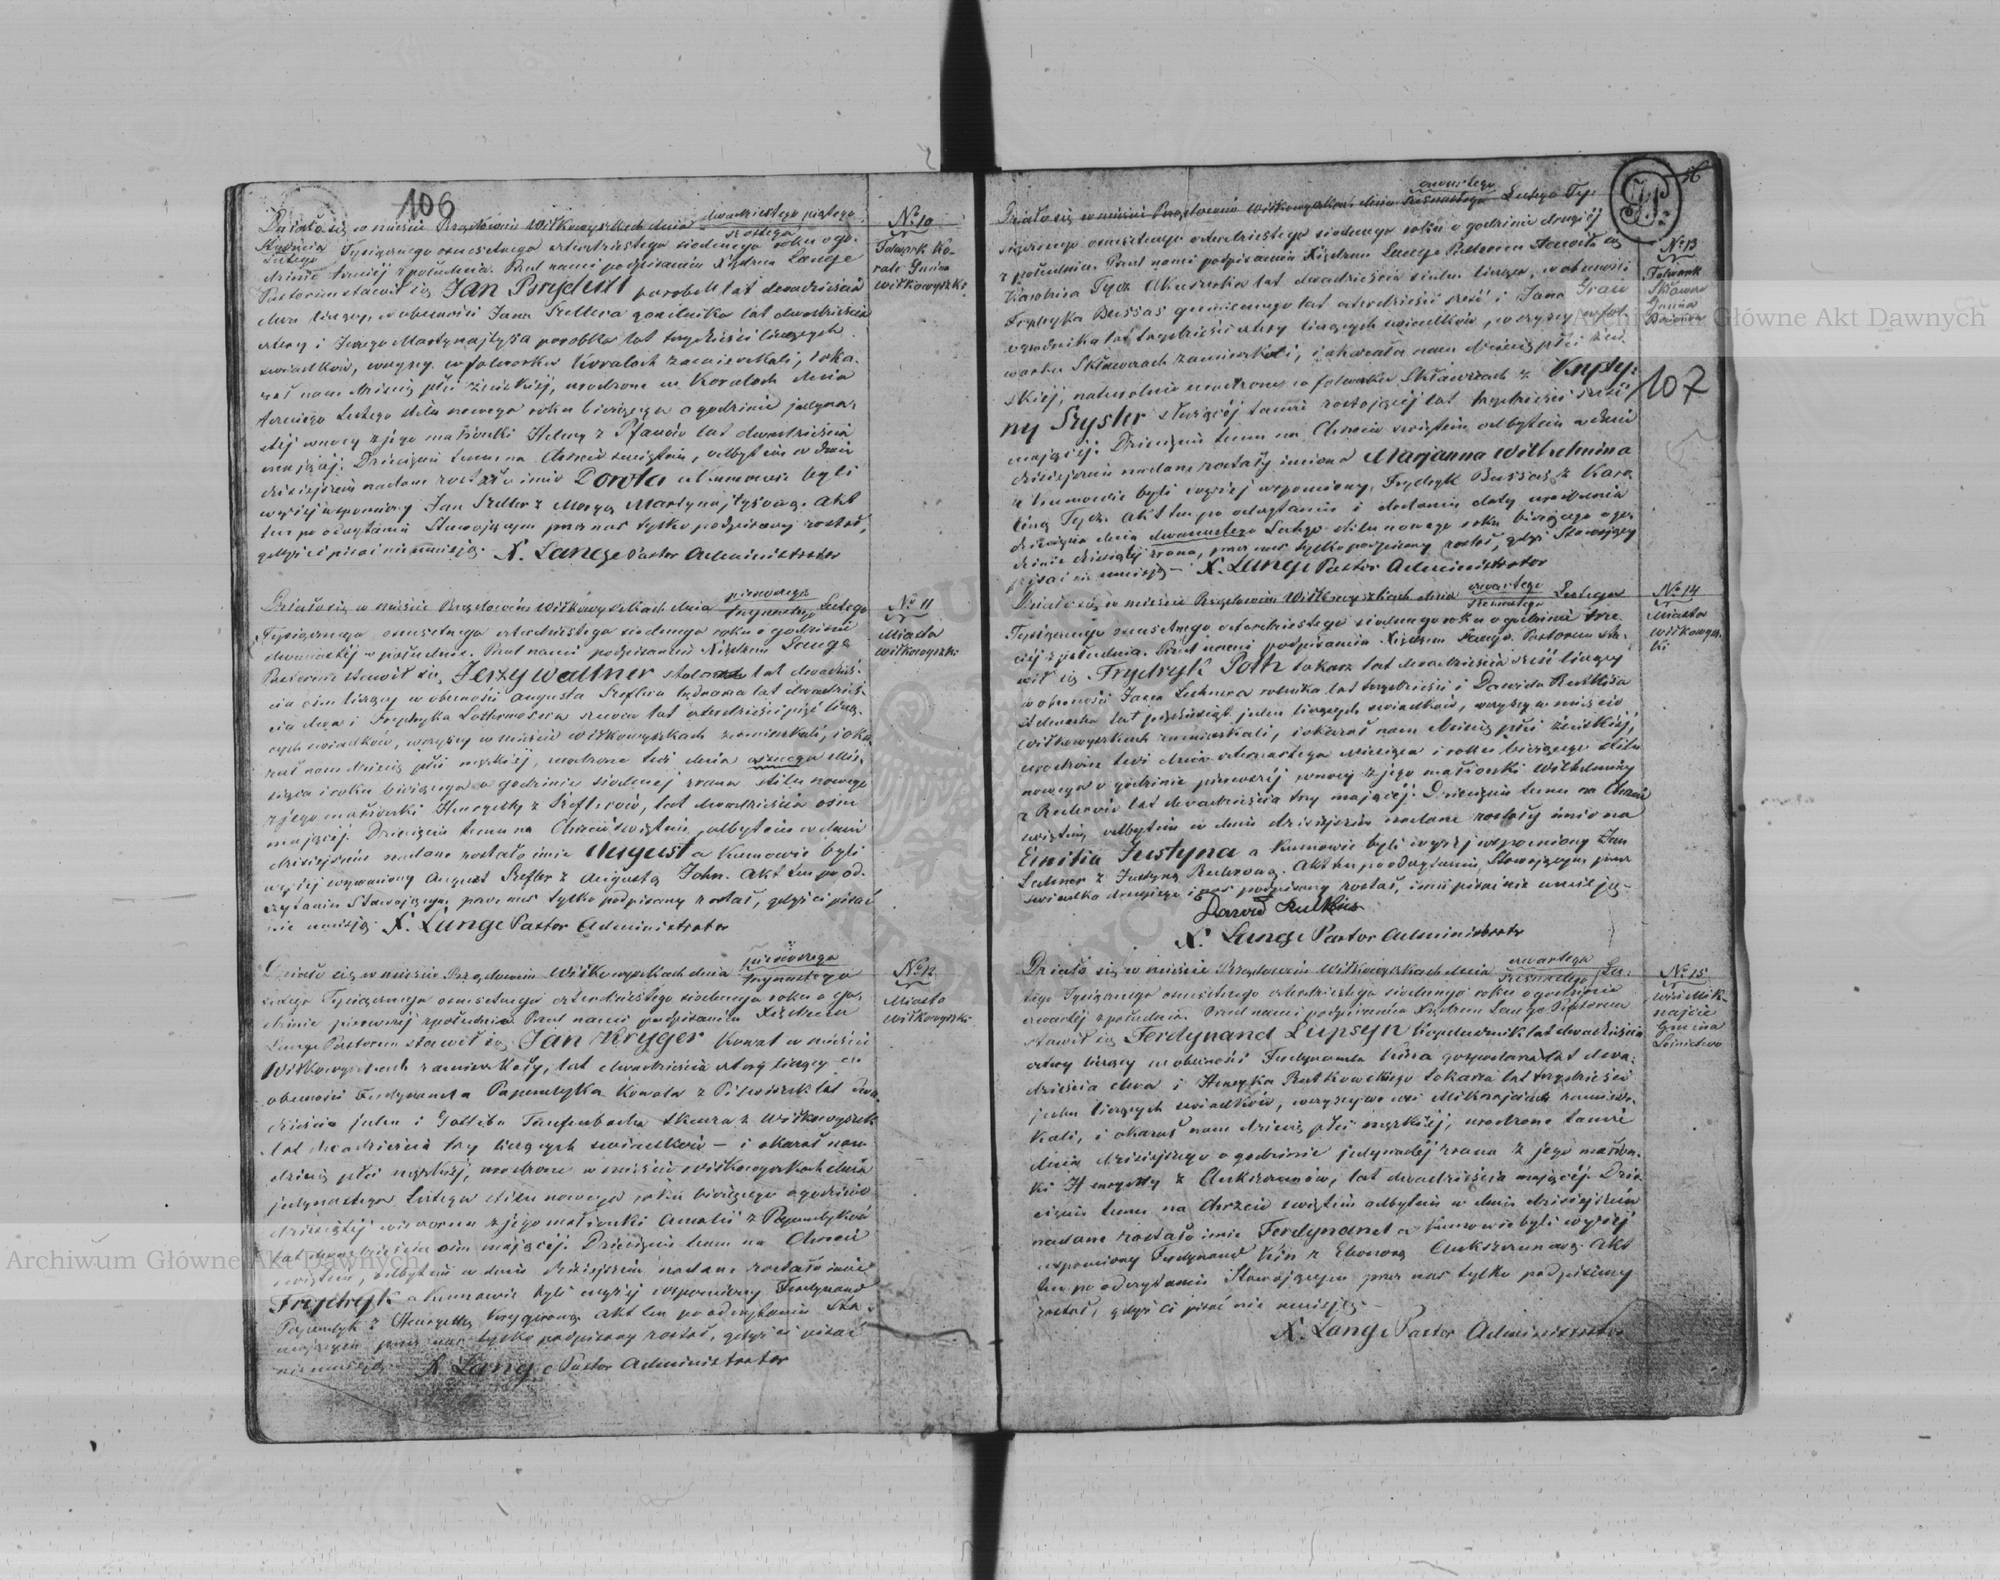 106
Działo się w mieście Powiatowém Wiłkowyszkach dnia dwudziestego piątego
Stycznia / szóstego
Lutego Tysiącznego osmsetnego czterdziestego siódmego roku o go-
dzinie trzeciéj z południa. Przed nami podpisanym Xiędzem Lange
Pastorem stawił się Jan parobek lat dwadzieścia
dwa liczący, w obecności Jana Szellera lat dwadzieścia
cztery i Jerzego parobka lat trzydzieści liczących
świadków, wszyscy w folwarku Koralach zamieszkali, i oka-
zał nam dziecię płci żeńskiéj, urodzone w Koralach dnia
trzeciego Lutego stilu nowego roku bieżącego o godzinie jedyna-
stéj w nocy z jego małżonki Heleny z lat dwadzieścia
mającéj. Dziecięciu temu na Chrzcie świętym, odbytym w dniu
dzisiejszym nadane zostało imie Dorota a Kumowie byli
wyżéj wspomniony Jan Szeller z Maryą. Akt
ten po odczytaniu Stawającym przez nas tylko podpisany został,
gdyż ci pisać nie umieją. X. Lange Pastor Administrator
No 10
Folwark Ko-
rale Gmina
Wiłkowyszki
Działo się w mieście Powiatowém Wiłkowyszkach dnia pierwszego / trzynastego Lutego
Tysiącznego osmsetnego czterdziestego siódmego roku o godzinie
dwunastéj w południe. Przed nami podpisanym Xiędzem Lange
Pastorem stawił się Jerzy Wallner lat dwadzieś-
cia ośm liczący w obecności Augusta Szeflera lat dwadzieś-
cia dwa i Frydryka szewca lat czterdzieści pięć licą-
cych świadków, wszyscy w mieście Wiłkowyszkach zamieszkali, i oka-
zał nam dziecię płci męzkiéj, urodzone tu dnia ósmego mie-
siąca i roku bieżącego o godzinie siódmej zrana stilu nowego
z jego małżonki Henryetty z Szeflerów, lat dwadzieścia ośm
mającéj. Dziecięciu temu na Chrzcie świętym, odbytym w dniu
dzisiejszym nadane zostało imie August a Kumowie byli
wyżéj wzmiankowany August Szefler z Augustą John. Akt ten po od-
czytaniu Stawającym, przez nas tylko podpisany został, gdyż ci pisać
nie umieją. X. Lange Pastor Administrator
No 11
Miasto
Wiłkowyszki
Działo się w mieście Powiatowém Wiłkowyszkach dnia pierwszego / trzynastego
Lutego Tysiącznego osmsetnego czterdziestego siódmego roku o go-
dzinie pierwszéj z południa. Przed nami podpisanym Xiędzem
Lange Pastorem stawił się Jan Kryger Kowal w mieście
Wiłkowyszkach zamieszkały, lat dwadzieścia cztery liczący w
obecności Ferdynanda Kowala z lat dwa-
dzieścia jeden i Gottliba z Wiłkowyszek
lat dwadzieścia trzy liczących świadków – i okazał nam
dziecię płci męzkiéj, urodzone w mieście Wiłkowyszkach dnia
jedynastego Lutego stilu nowego roku bieżącego o godzinie
dziesiątéj wieczorem z jego małżonki Amalii z
lat dwadzieścia ośm mającéj. Dziecięciu temu na Chrzcie
świętym, odbytym w dniu dzisiejszym nadane zostało imie
Frydryk a Kumowie byli wyżéj wspomniony Ferdynand
z Henryettą Krygerową. Akt ten po odczytaniu Sta-
wającym przez nas tylko podpisany został, gdyż ci pisać
nie umieją. X Lange Pastor Administrator
No 12
Miasto
Wiłkowyszki
16
Działo się w mieście Powiatowém Wiłkowyszkach dnia czwartego / szesnastego Lutego Ty-
siącznego osmsetnego czterdziestego siódmego roku o godzinie drugiéj
z południa. Przed nami podpisanym Xiędzem Lange Pastorem stawiła się
Karolina Tycz Akuszerka lat dwadzieścia liczęca, w obecności
Frydryka Bussas lat czterdzieści sześć i Jana Grau
ogrodnika lat trzydzieści cztery liczących świadków, wszyscy w fol-
warku Skławzach zamieszkali, i okazała nam dziecię płci żeń-
skiéj, naturalnie urodzone w folwarku Skławzach z Krysty-
ny Szyster służącéj tamże zostającéj lat trzydzieści sześć
mającéj. Dziecięciu temu na Chrzcie świętym odbytym w dniu
dzisiejszym nadane zostały imiona Maryanna Wilhelmina
a Kumowie byli wyżéj wspomniony, Frydryk Bussas z Karo-
liną Tycz. Akt ten po odczytaniu i dodaniu daty urodzenia
dziecięcia dnia dwunastego Lutego stilu nowego roku bieżącego o go-
dzinie dziesiątéj zrana, przez nas tylko podpisany został, gdyż Stawający
pisać nie umieją – X. Lange Pastor Administrator
No 13
Folwark
Gmina
107
Działo się w mieście Powiatowém Wiłkowyszkach dnia czwartego / szesnastego Lutego
Tysiącznego osmsetnego czterdziestego siódmego roku o godzinie trze-
ciéj z południa. Przed nami podpisanym Xiędzem Lange Pastorem sta-
wił się Frydryk Poth tokarz lat dwadzieścia sześć liczący
w obecności Jana Lechnera rolnika lat trzydzieści i Dawida
lat pięćdziesiąt jeden liczących świadków, wszyscy w mieście
Wiłkowyszkach zamieszkali, i okazał nam dziecię płci żeńskiéj,
urodzone tu dnia czternastego miesiąca i roku bieżącego stilu
nowego o godzinie pierwszéj w nocy z jego małżonki Wilhelminy
z lat dwadzieścia trzy mającéj. Dziecięciu temu na Chrzcie
świętym odbytym w dniu dzisiejszym nadane zostały imiona
Emilia Justyna a Kumowie byli wyżéj wspomniony Jan
Lechner z Justyną. Akt ten po odczytaniu Stawającym przez
świadka drugiego i nas podpisany został, inni pisać nie umieją.
Dawid
X. Lange Pastor Administrator
No 14
Miasto
Wiłkowysz-
ki
Działo się w mieście Powiatowém Wiłkowyszkach dnia czwartego / szesnastego Lu-
tego Tysiącznego osmsetnego czterdziestego siódmego roku o godzinie
czwartéj z południa. Przed nami podpisanym Xiędzem Lange Pastorem
stawił się Ferdynand Lupsyn lat dwadzieścia
cztery liczący w obecności Ferdynanda Kina gospodarza lat dwa-
dzieścia dwa i Henryka Rutkowskiego tokarza lat trzydzieści
jeden liczących świadków, wszyscy we wsi zamiesz-
kali, i okazał nam dziecię płci męzkiéj, urodzone tamże
dnia dzisiejszego o godzinie jedynastéj zrana z jego małżon-
ki Henryetty z, lat dwadzieścia mającéj. Dzie-
cięciu temu na Chrzcie świętym odbytym w dniu dzisiejszym
nadane zostało imie Ferdynand a Kumowie byli wyżéj
wspomniony Ferdynand Kin z Eleonorą. Akt
ten po odczytaniu Stawającym przez nas tylko podpisany
został, gdyż ci pisać nie umieją. –
X. Lange Pastor Administrator
No 15
Wieś Mik-
Gmina
Archiwum Główne Akt Dawnych
Archiwum Główne Akt Dawnych